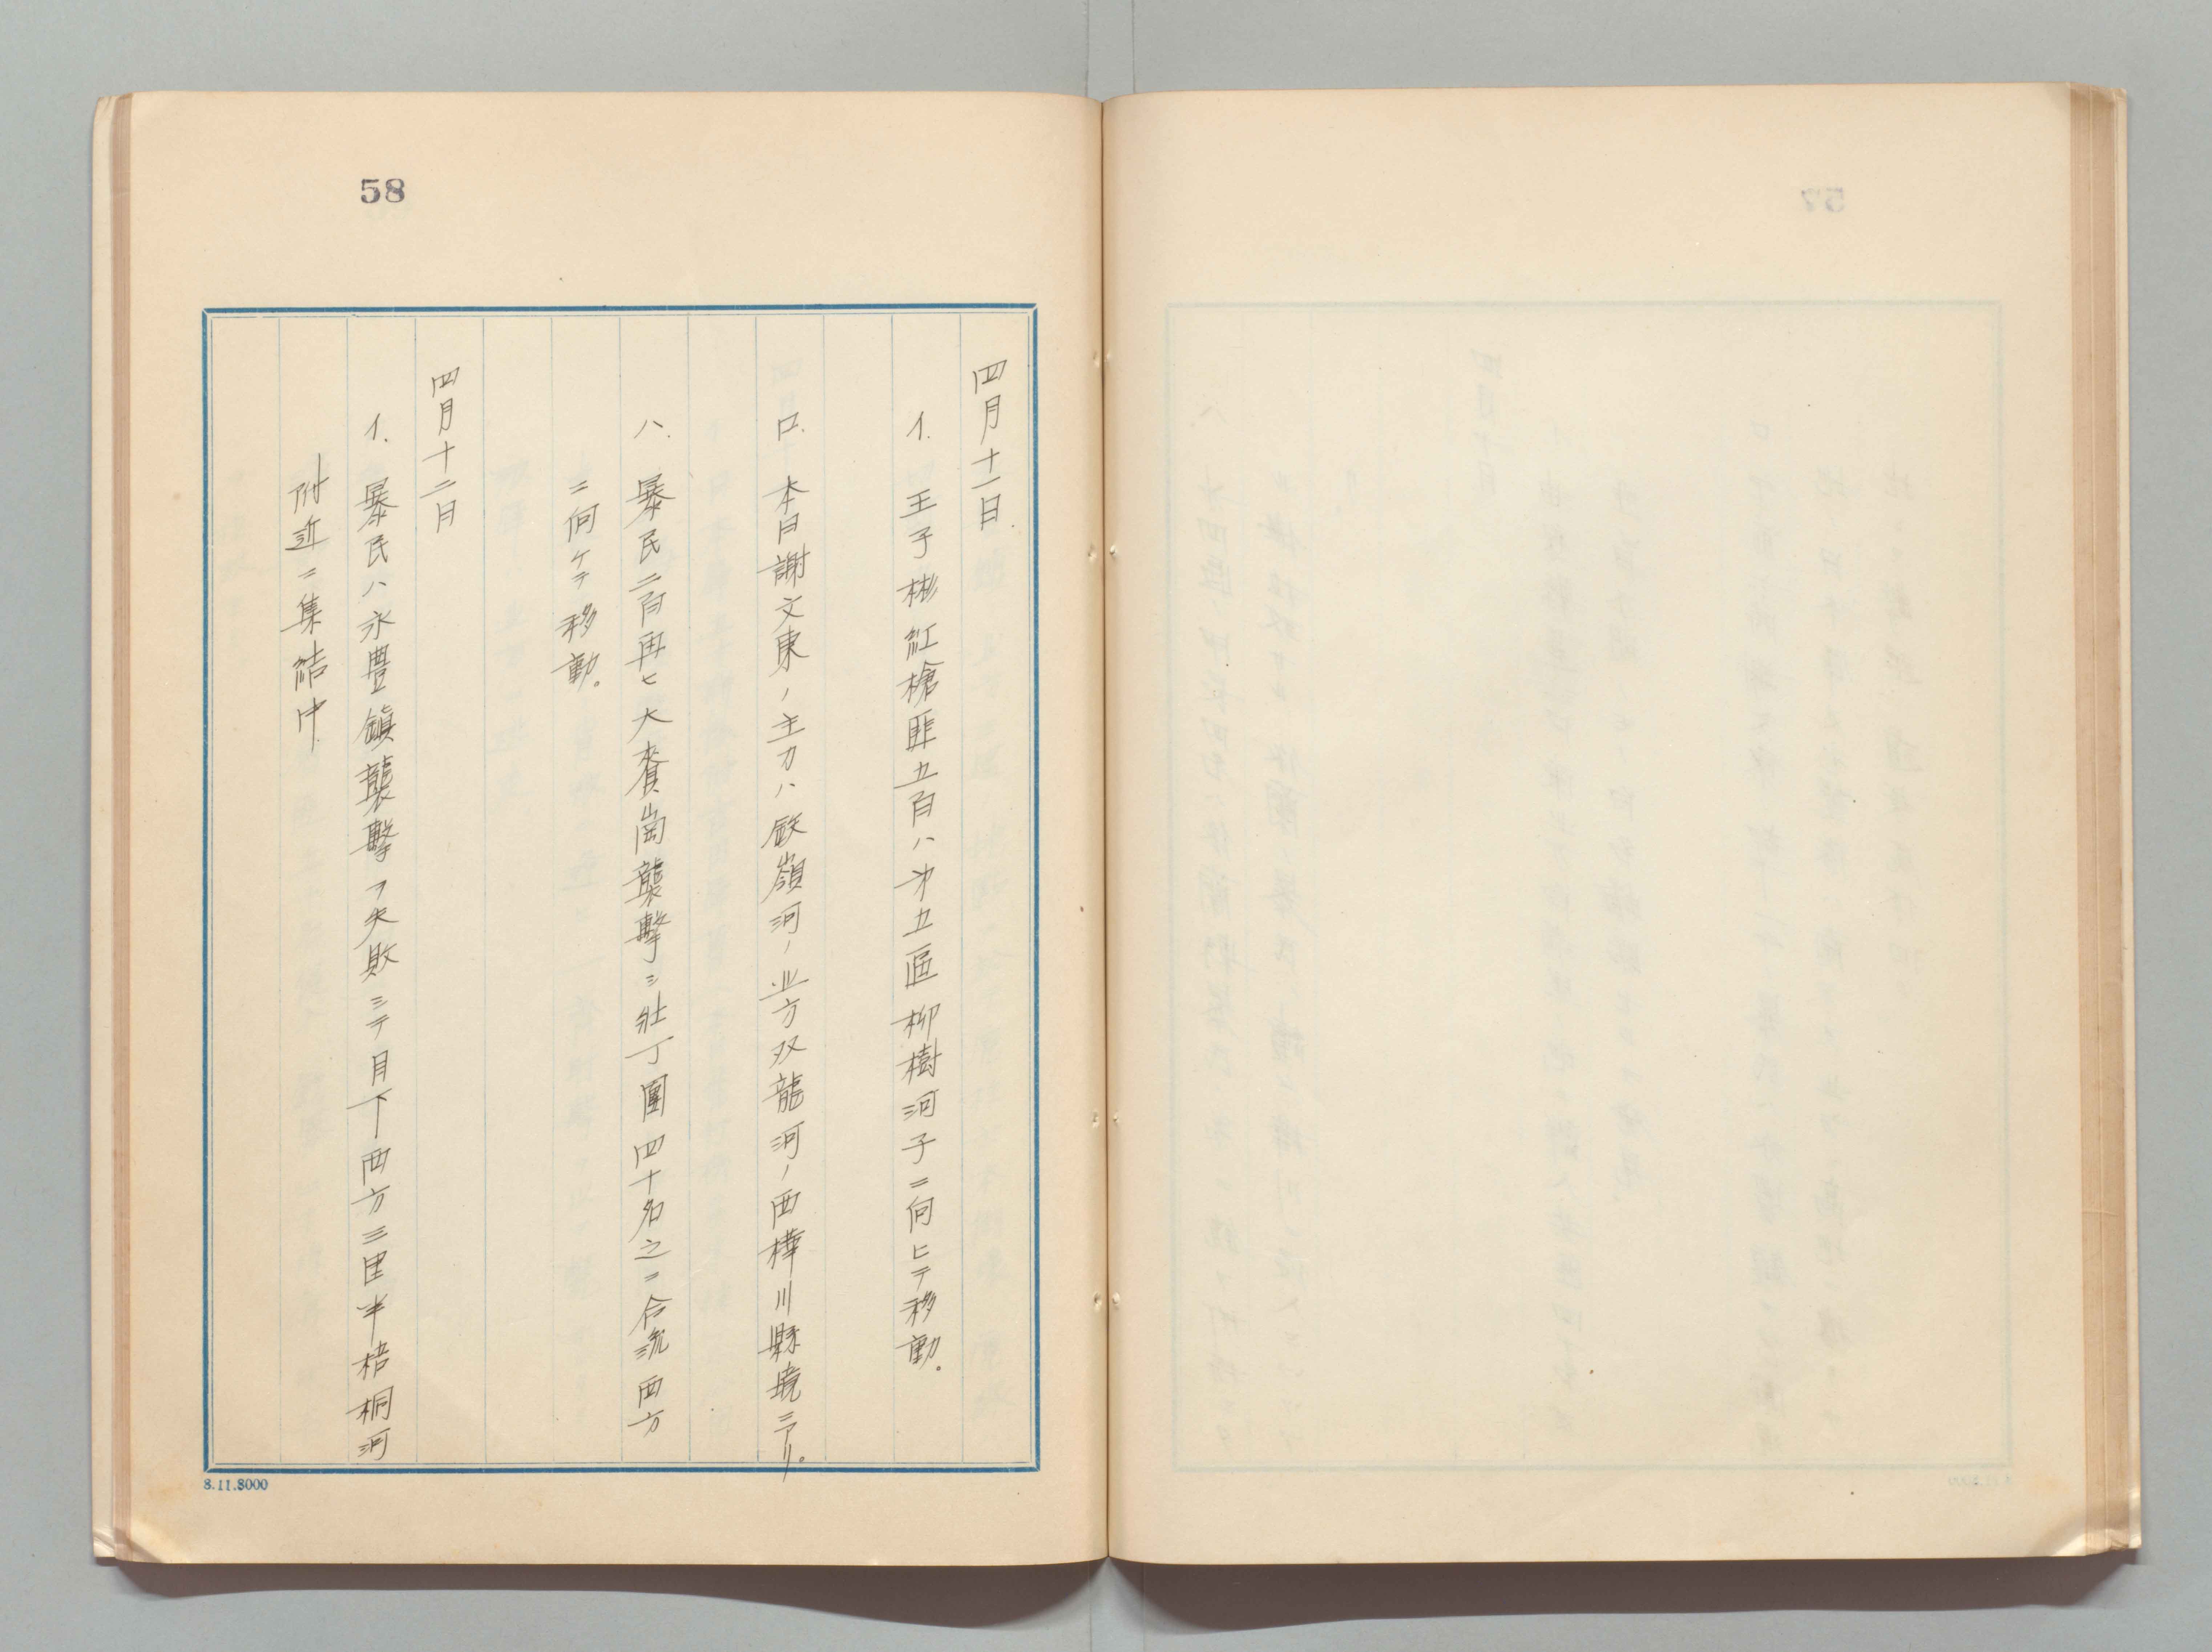 58
四月十一日
イ. 王子彬紅槍匪五百ハ才五區柳樹河子ニ向ヒテ移動。
ロ. 本日謝文東ノ主力ハ䥫嶺河ノ北方双龍河ノ西樺川縣境ニアリ。
ハ. 暴民二百再ヒ大賚崗襲擊シ壯丁團四十名之ニ合流西方
ニ向ケテ移動。
四月十二日
イ. 暴民ハ永豊鎮襲擊ヲ失敗シテ目下西方三里半梧桐河
附近ニ集結中
8.11.8000